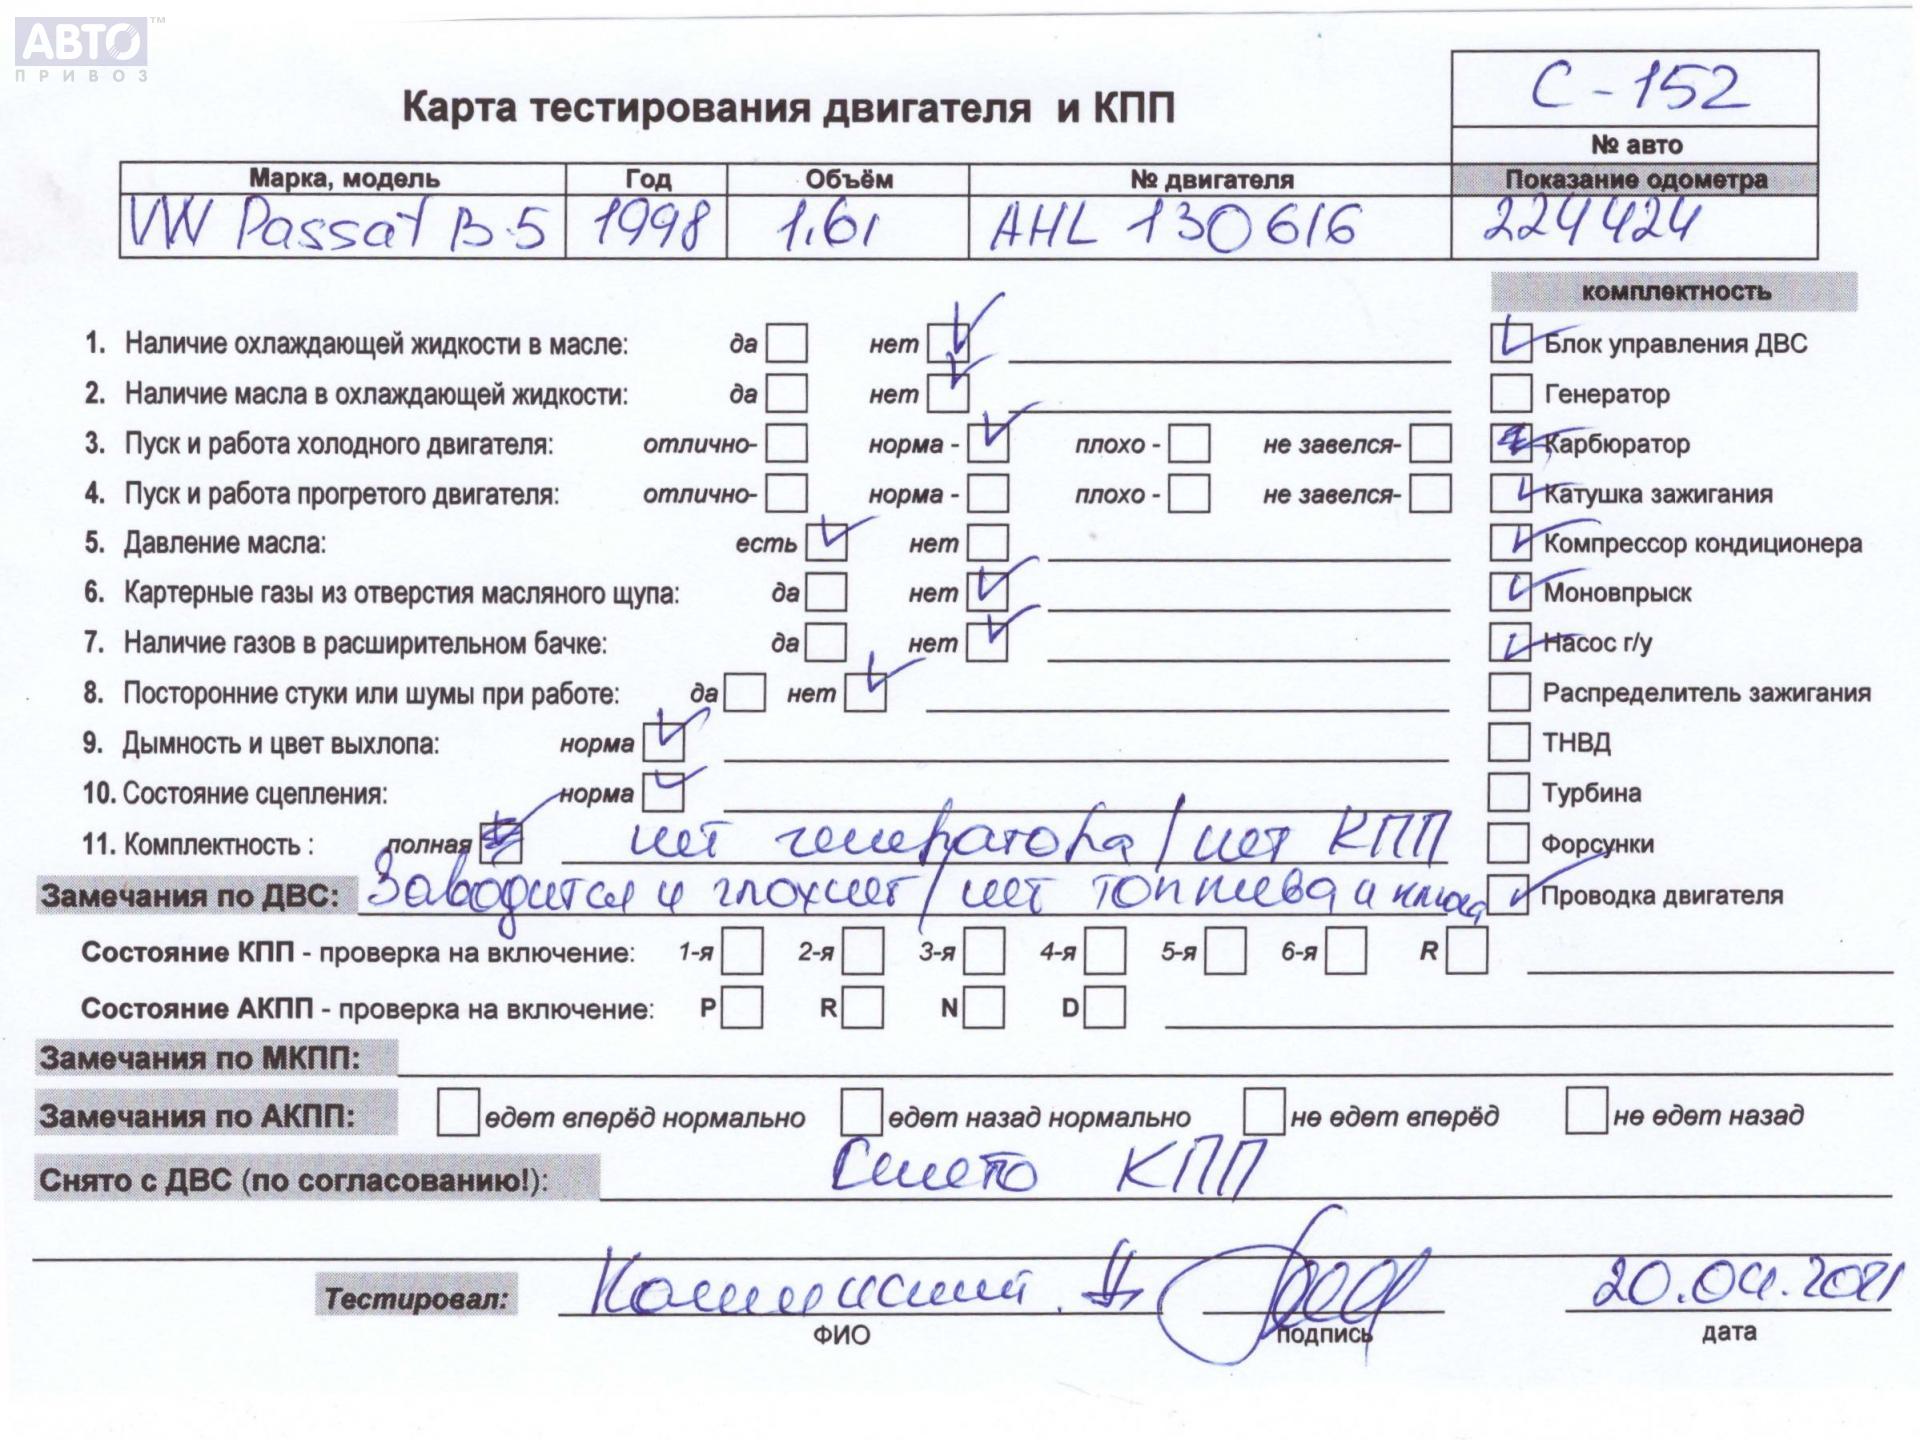 АВТО™
ПРИВОЗ
С-152
Карта тестирования двигателя и КПП
№ авто
Марка, модель Год Объём № двигателя Показание одометра
VW Passat B-5 1998 1.6i AHL 130616 224424
комплектность
1. Наличие охлаждающей жидкости в масле: да нет Блок управления ДВС
2. Наличие масла в охлаждающей жидкости: да нет Генератор
3. Пуск и работа холодного двигателя: отлично- норма - плохо - не завелся- Карбюратор
4. Пуск и работа прогретого двигателя: отлично- норма - плохо - не завелся- Катушка зажигания
5. Давление масла: есть нет Компрессор кондиционера
6. Картерные газы из отверстия масляного щупа: да нет Моновпрыск
7. Наличие газов в расширительном бачке: да нет Насос г/у
8. Посторонние стуки или шумы при работе: да нет Распределитель зажигания
9. Дымность и цвет выхлопа: норма ТНВД
10. Состояние сцепления: норма Турбина
11. Комплектность : полная нет генератора/нет КПП Форсунки
Замечания по ДВС: Заводится и глохнет/нет топлива и ключа Проводка двигателя
Состояние КПП - проверка на включение: 1-я 2-я 3-я 4-я 5-я 6-я R
Состояние АКПП - проверка на включение: P R N D
Замечания по МКПП:
Замечания по АКПП: едет вперёд нормально едет назад нормально не едет вперёд не едет назад
Снято с ДВС (по согласованию!): Снято КПП
Тестировал: 20.04.2021
ФИО подпись дата